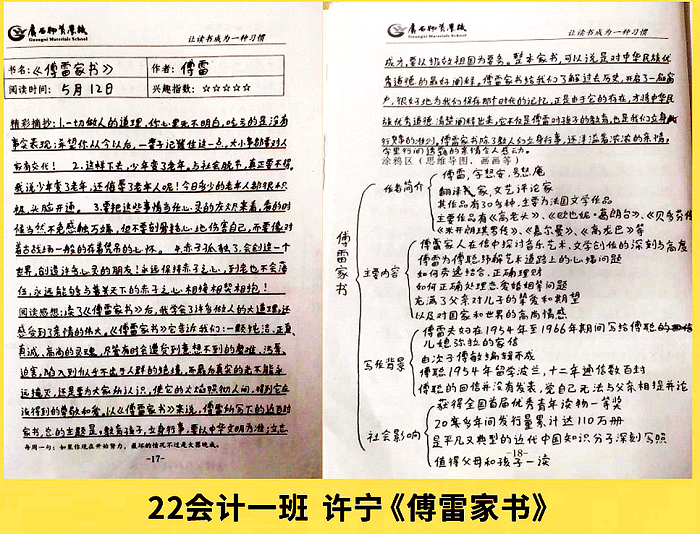 广西物资学校
Guangxi Materials School
让读书成为一种习惯
书名：《傅雷家书》
作者：傅雷
阅读时间：5月12日
兴趣指数：☆☆☆☆☆
精彩摘抄：1.一切做人的道理，你心里无不明白，吃亏的是没有
事实表现；希望你从今以后，一辈子记住这一点。大小事都要对人
有所交代！ 2.这样下去，少年变了老年。与社会脱节，真正要不得。
我说少年变了老年，还侮辱了老年人呢！今日多少的老年人都很积
极，头脑开通。 3.要把这些事情当作心灵的灰烬来看，看的时
候当然不免感触万端，但不要刻骨铭心地伤害自己，而要像对
着古战场一般的存着凭吊的心怀。 4.赤子孤独了，会创造一个
世界，创造许多心灵的朋友！永远保持赤子之心，到老也不会落
伍，永远能够与普天下的赤子之心相接相契相抱！
阅读感想：读了《傅雷家书》后，我学会了许多做人的大道理，还
感受到了亲情的伟大。《傅雷家书》它告诉我们：一颗纯洁、正直、
真诚、高尚的灵魂，尽管有时会遭受到意想不到的磨难、污辱、
迫害，陷入到似乎不齿于人群的绝境，而最为真实的光不能永
远掩灭，还是要为大家所认识，使它的光焰照彻人间，得到它应
该得到的尊敬和爱。以《傅雷家书》来说，傅雷所写下的这百封
家书，总的主题是：教育孩子，立身行事，要以中华文明为准；立志
每周一句：如果你现在开始努力，最坏的情况不过是大器晚成。
-17-
让读书成为一种习惯
成才，要以报效祖国为要务。整本家书，可以说是对中华民族优
秀道德的最好阐释。傅雷家书给我们了解过去历史，开启了一扇窗
户，很好地为我们保存那个时代的记忆，正是由于它的存在，才将中华民
族优秀道德清楚阐释出来，它不仅是傅雷对孩子的教育，也是我们立身
行事的准则。傅雷家书除了教人们立身行事，还洋溢着浓浓的亲情，
字里行间透露的亲情令人感动。
涂鸦区（思维导图、画画等）
傅雷家书
作者简介
傅雷，字怒安，号怒庵
翻译家，文艺评论家
其作品有30多种，主要为法国文学作品
主要作品有《高老头》、《欧也妮·葛朗台》、《贝多芬传》
《米开朗琪罗传》、《嘉尔曼》、《高龙巴》等
主要内容
傅雷家人在信中探讨音乐艺术，文学创作的深刻与高度
傅雷为傅聪纾解艺术道路上的心结问题
如何劳逸结合，正确理财
如何正确处理恋爱婚姻等问题
充满了父亲对儿子的挚爱和期望
以及对国家和世界的高尚情感
写作背景
傅雷夫妇在1954年至1966年期间写给傅聪的
儿媳弥拉的家信
由次子傅敏编辑而成
傅聪1954年留学波兰，十二年通信数百封
傅聪的回信并没有发表，觉自己无法与父亲相提并论
社会影响
获得全国首届优秀青年读物一等奖
20来多年间发行量累计达110万册
是平凡又典型的近代中国知识分子深刻写照
值得父母和孩子一读
-18-
22会计一班 许宁《傅雷家书》